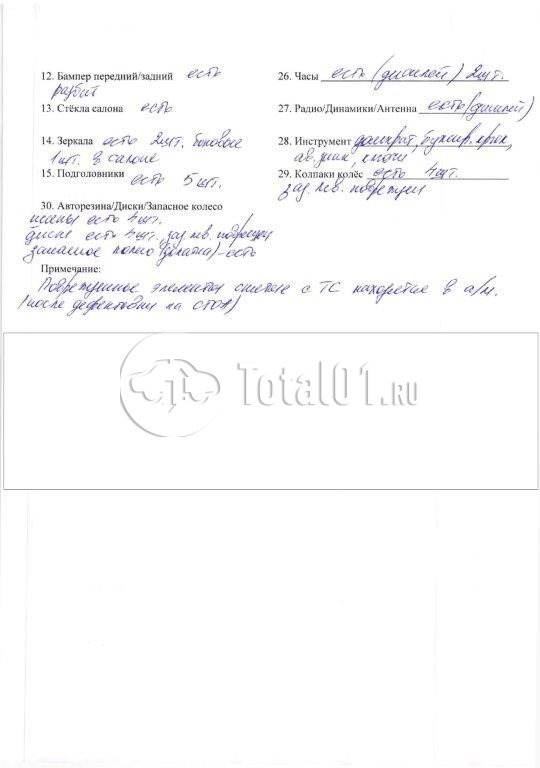 12. Бампер передний/задний есть
разбит
13. Стёкла салона есть
14. Зеркала есть 2 шт. боковые
1 шт. в салоне
15. Подголовники есть 5 шт.
26. Часы есть (дисплей) 2 шт.
27. Радио/Динамики/Антенна есть (дисплей)
28. Инструмент домкрат, буксир. крюк,
ключи
29. Колпаки колёс есть 4 шт.
зад. лев. поврежден
30. Авторезина/Диски/Запасное колесо
есть 4 шт.
диски есть 4 шт., зад. лев. поврежден
запасное колесо (докатка) - есть
Примечание:
Поврежденные элементы снятые с ТС находятся в а/м.
(после дефектовки на СТОА)
Total01.RU